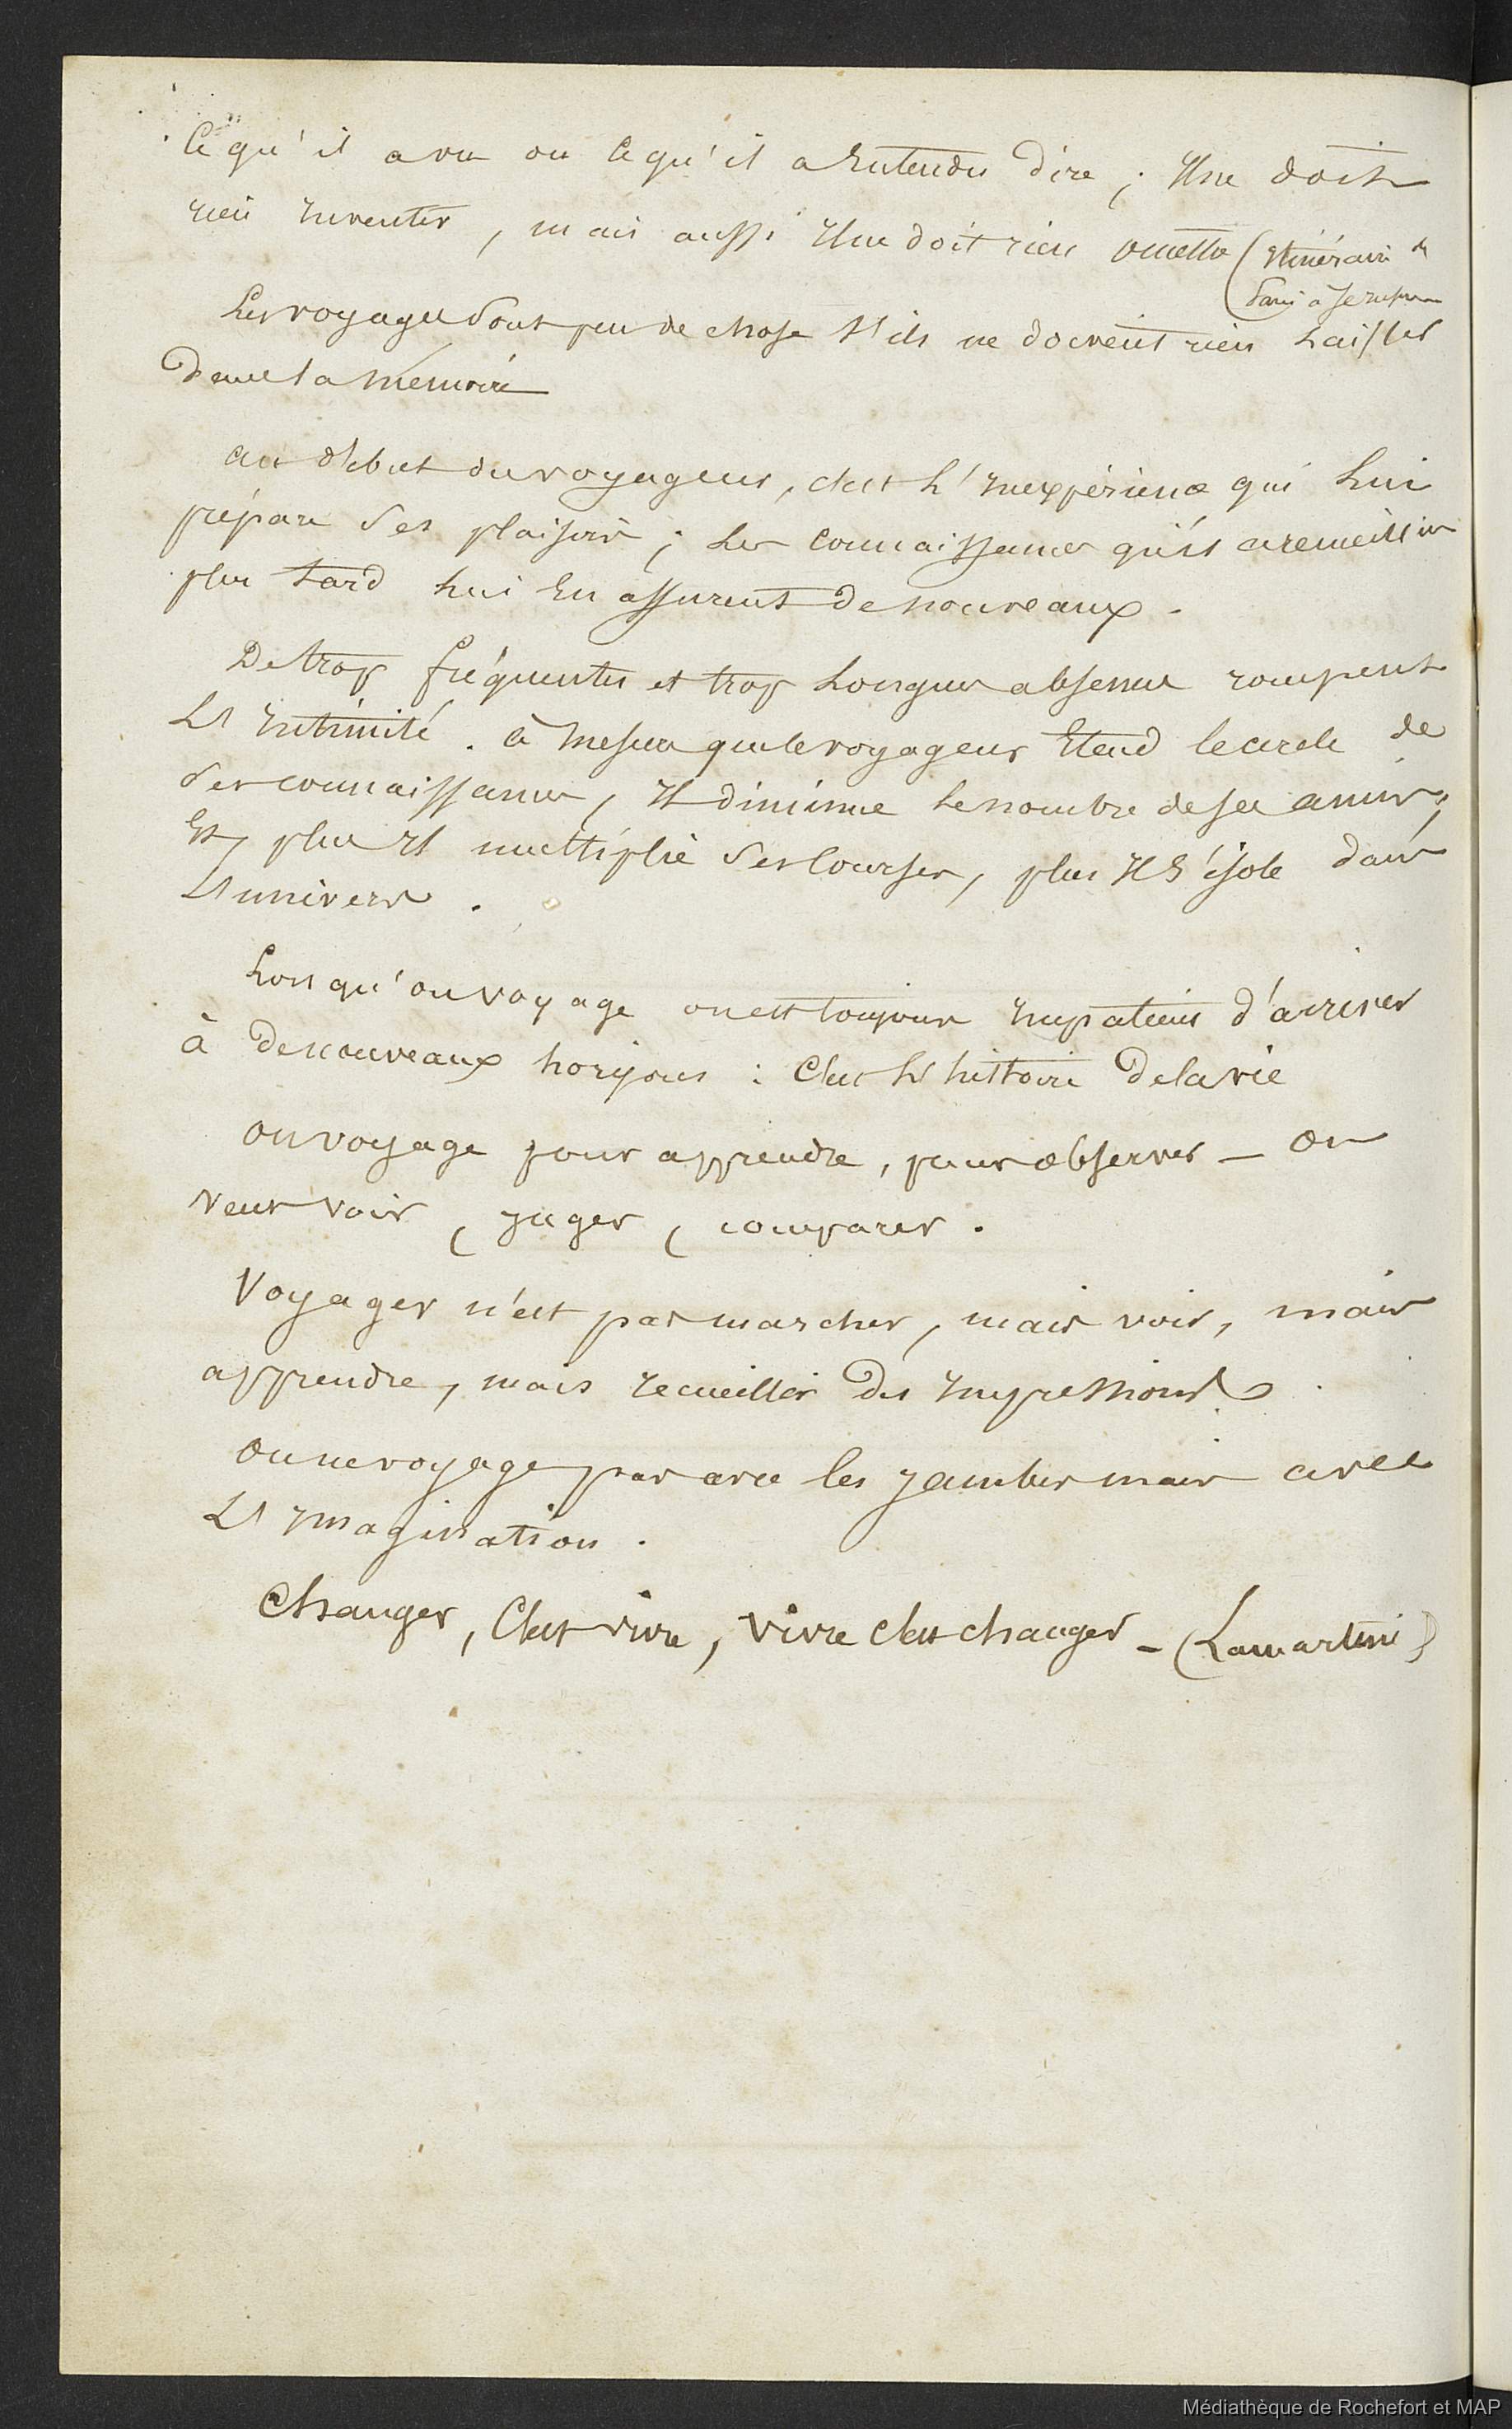 Ce qu'il a vu ou ce qu'il a Entendu dire ; Il ne doit
rien Inventer, mais aussi Il ne doit rien omettre (Itinéraire de
Paris à Jerusalem
Les voyages sont peu de chose s'ils ne doivent rien Laisser
dans la mémoire
au début du voyageur, c'est L'Inexpérience qui Lui
prépare ses plaisirs ; Les connaissances qu'il a recueillies
plus tard Lui En assurent de nouveaux.
De trop fréquentes et trop Longues absences rompent
L'Intimité. à mesure que le voyageur Etend le cercle de
ses connaissances, Il diminue Le nombre de ses amis,
Et plus Il multiplie ses Courses, plus Il s'isole dans
L'univers.
Lorsqu'on voyage on est toujours Impatient d'arriver
à de nouveaux horizons : C'est L'histoire de la vie
on voyage pour apprendre, pour observer - on
veut voir, juger, comparer.
Voyager n'est pas marcher, mais voir, mais
apprendre, mais recueillir des Impressions.
on ne voyage pas avec les jambes mais avec
L'Imagination.
Changer, C'est vivre, vivre c'est changer - (Lamartine)
Médiathèque de Rochefort et MAP